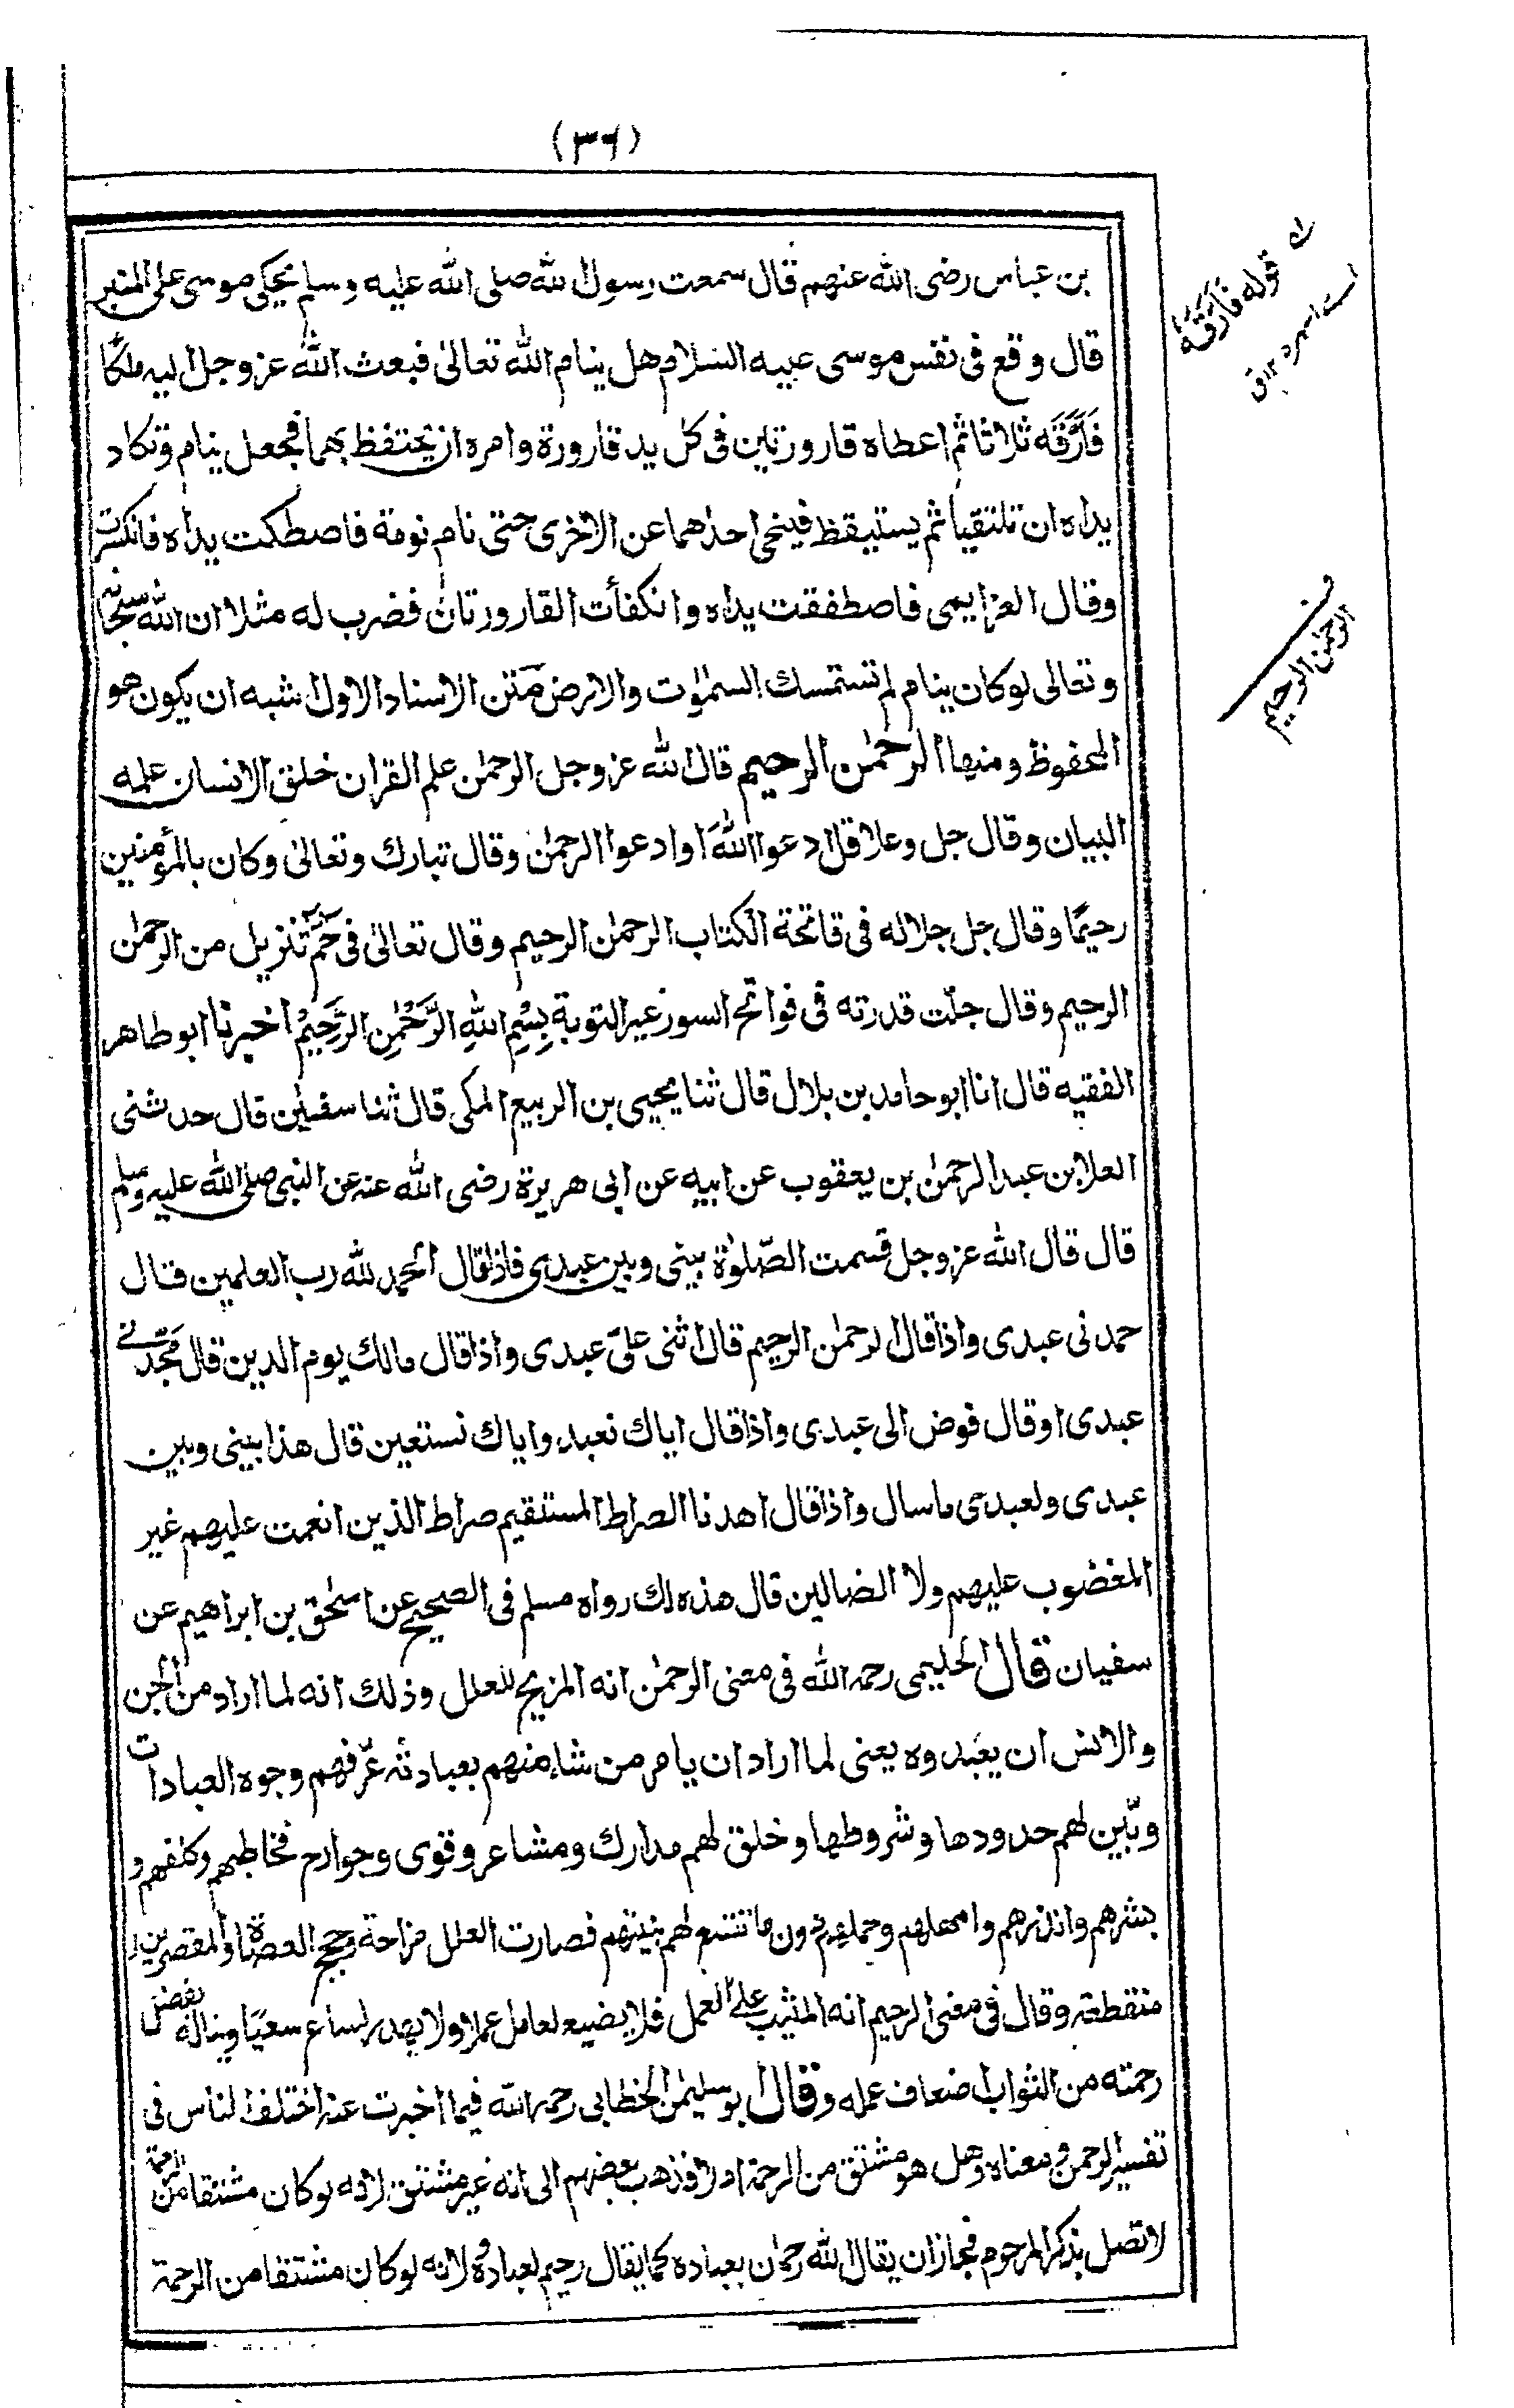 (٣٦)
بن عباس رضى الله عنهم قال سمعت رسول الله صلى الله عليه وسلم يحكى موسى على المنبر
قال وقع فى نفس موسى عليه السلام هل ينام الله تعالىٰ فبعث الله عز وجل اليه ملكًا
فَاَرَّقَه ثلاثا ثم اعطاه قارورتين فى كل يد قارورة وامره ان يحتفظ بهما فجعل ينام وتكاد
يداه ان تلتقيا ثم يستيقظ فينحى احداهما عن الاخرى حتى نام نومة فاصطكت يداه فانكسرت
وقال العزايمى فاصطفقت يداه وانكفأت القارورتان فضرب له مثلا ان الله سبحانه
وتعالى لو كان ينام لم تستمسك السمٰوٰت والارض متن الاسناد الاول اشبه ان يكون هو
المحفوظ ومنها الرحمٰن الرحيم قال الله عز وجل الرحمٰن علم القران خلق الانسان علمه
البيان وقال جل وعلا قل ادعوا اللهَ اوادعوا الرحمٰن وقال تبارك وتعالىٰ وكان بالمؤمنين
رحيمًا وقال جل جلاله فى فاتحة الكتاب الرحمٰن الرحيم وقال تعالىٰ فى حٰمٓ تنزيل من الرحمٰن
الرحيم وقال جلّت قدرته فى فواتح السور غير التوبة بِسْمِ اللهِ الرَّحْمٰنِ الرَّحِيْمِ اخبرنا ابو طاهر
الفقيه قال انا ابو حامد بن بلال قال ثنا يحيى بن الربيع المكى قال ثنا سفيٰن قال حدثنى
العلا بن عبد الرحمٰن بن يعقوب عن ابيه عن ابى هريرة رضى الله عنه عن النبى صلى الله عليه وسلم
قال قال الله عز وجل قسمت الصّلوٰة بينى وبين عبدى فاذا قال الحمد لله رب العلمين قال
حمدنى عبدى واذا قال الرحمٰن الرحيم قال اثنى علىّ عبدى واذا قال مالك يوم الدين قال مَجّدنى
عبدى او قال فوض الى عبدى واذا قال اياك نعبد واياك نستعين قال هذا بينى وبين
عبدى ولعبدى ما سال واذا قال اهدنا الصراط المستقيم صراط الذين انعمت عليهم غير
المغضوب عليهم ولا الضالين قال هذه لك رواه مسلم فى الصحيح عن اسحٰق بن ابراهيم عن
سفيان قال الحليمى رحمه الله فى معنى الرحمٰن انه المزيح للعلل وذلك انه لما اراد من الجن
والانس ان يعبدوه يعنى لما اراد ان يامر من شاء منهم بعبادته عرّفهم وجوه العبادات
وبّين لهم حدودها وشروطها وخلق لهم مدارك ومشاعر وقوى وجوارح فخاطبهم وكلفهم و
بشرهم وانذرهم وامهلهم وحملهم دون ما تتسع لهم بنيتهم فصارت العلل مزاحة وحجج العصاة والمقصرين
منقطعة وقال فى معنى الرحيم انه المثيب على العمل فلا يضيع لعامل عملا ولا يهدر لساع سعيًا ويناله بفضل
رحمته من الثواب اضعاف عمله وقال ابو سليمٰن الخطابى رحمه الله فيما اخبرت عنه اختلف الناس فى
تفسير الرحمٰن ومعناه وهل هو مشتق من الرحمة ام لا فذهب بعضهم الى انه غير مشتق لانه لو كان مشتقا من الرحمة
لاتصل بذكر المرحوم فجاز ان يقال الله رحمٰن بعباده كما يقال رحيم بعباده ولانه لو كان مشتقا من الرحمة
قوله فَاَرَّقَهٗ
الرحمٰن الرحيم